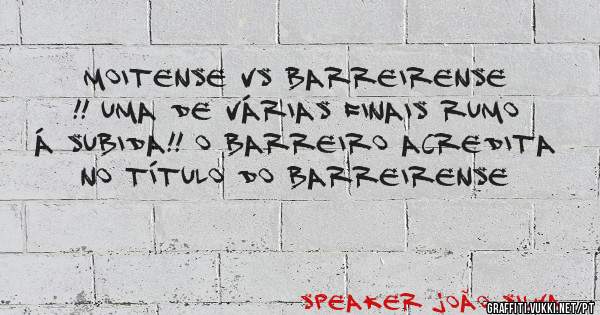 MOITENSE VS BARREIRENSE
!! UMA DE VÁRIAS FINAIS RUMO
Á SUBIDA!! O BARREIRO ACREDITA
NO TÍTULO DO BARREIRENSE
SPEAKER JOÃO SILVA
GRAFFITI.VUKKI.NET/PT